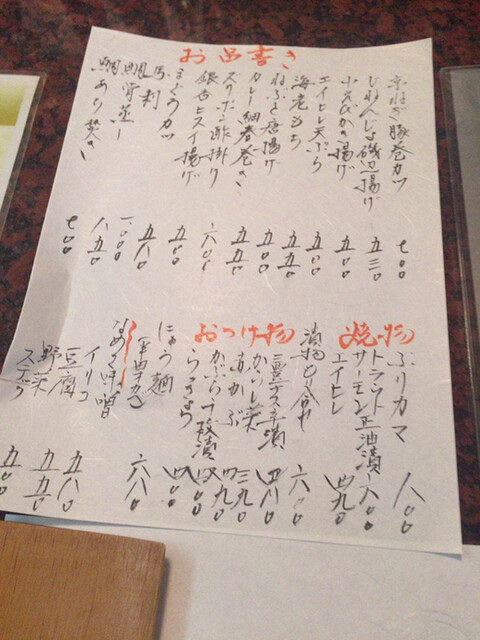 お品書き
京ねぎ豚巻カツ 七〇〇
じねんじょ磯辺揚げ 五三〇
小えびかき揚げ 五〇〇
エイヒレ天ぷら 五〇〇
海老もち 五五〇
ねぶと唐揚げ 五〇〇
カレー細春巻き 五五〇
スッポン酢掛け 六〇〇
銀杏ヒスイ揚げ
まぐろカツ 五八〇
馬刺 一、〇〇〇
鯛骨蒸し 八五〇
鯛あら焚き 七〇〇
焼物
ぶりカマ 八〇〇
トラウトサーモン正油漬 六〇〇
エイヒレ 四九〇
おつけ物
漬物もり合せ 六〇〇
三豊ナス辛漬 四八〇
からし菜 三九〇
赤かぶ 四九〇
かぶら千枚漬
らっきょう 四〇〇
にゅう麺 六八〇
なめろ味噌
イリコ 五八〇
豆腐 五五〇
野菜スティック 五〇〇